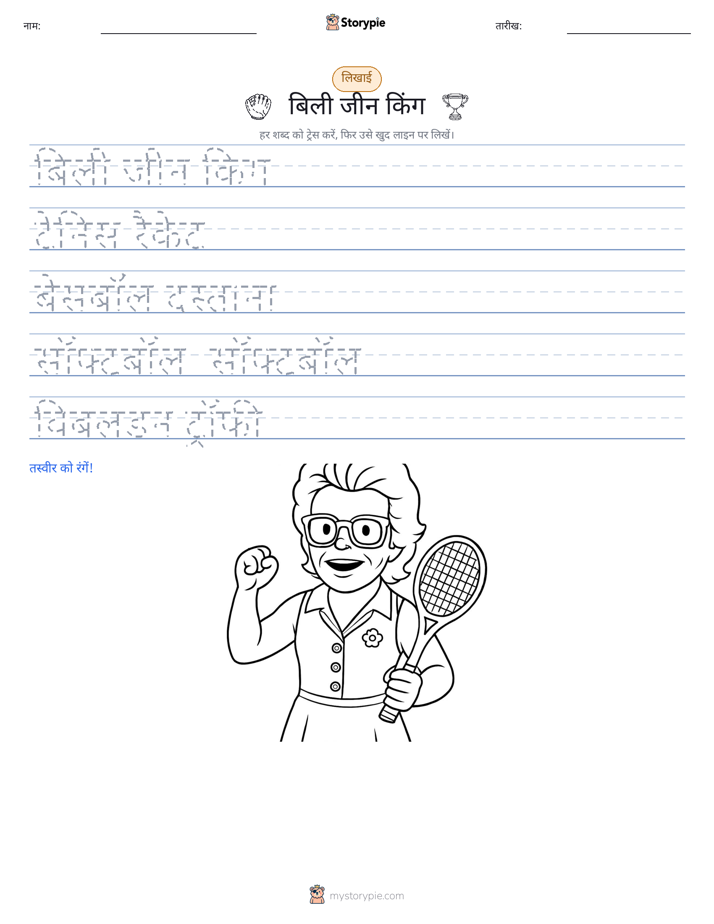 नाम:
Storypie
तारीख:
लिखाई
बिली जीन किंग
हर शब्द को ट्रेस करें, फिर उसे खुद लाइन पर लिखें।
बिली जीन किंग
टेनिस रैकेट
बेसबॉल दस्ताना
सॉफ्टबॉल सॉफ्टबॉल
विंबलडन ट्रॉफी
तस्वीर को रंगें!
mystorypie.com